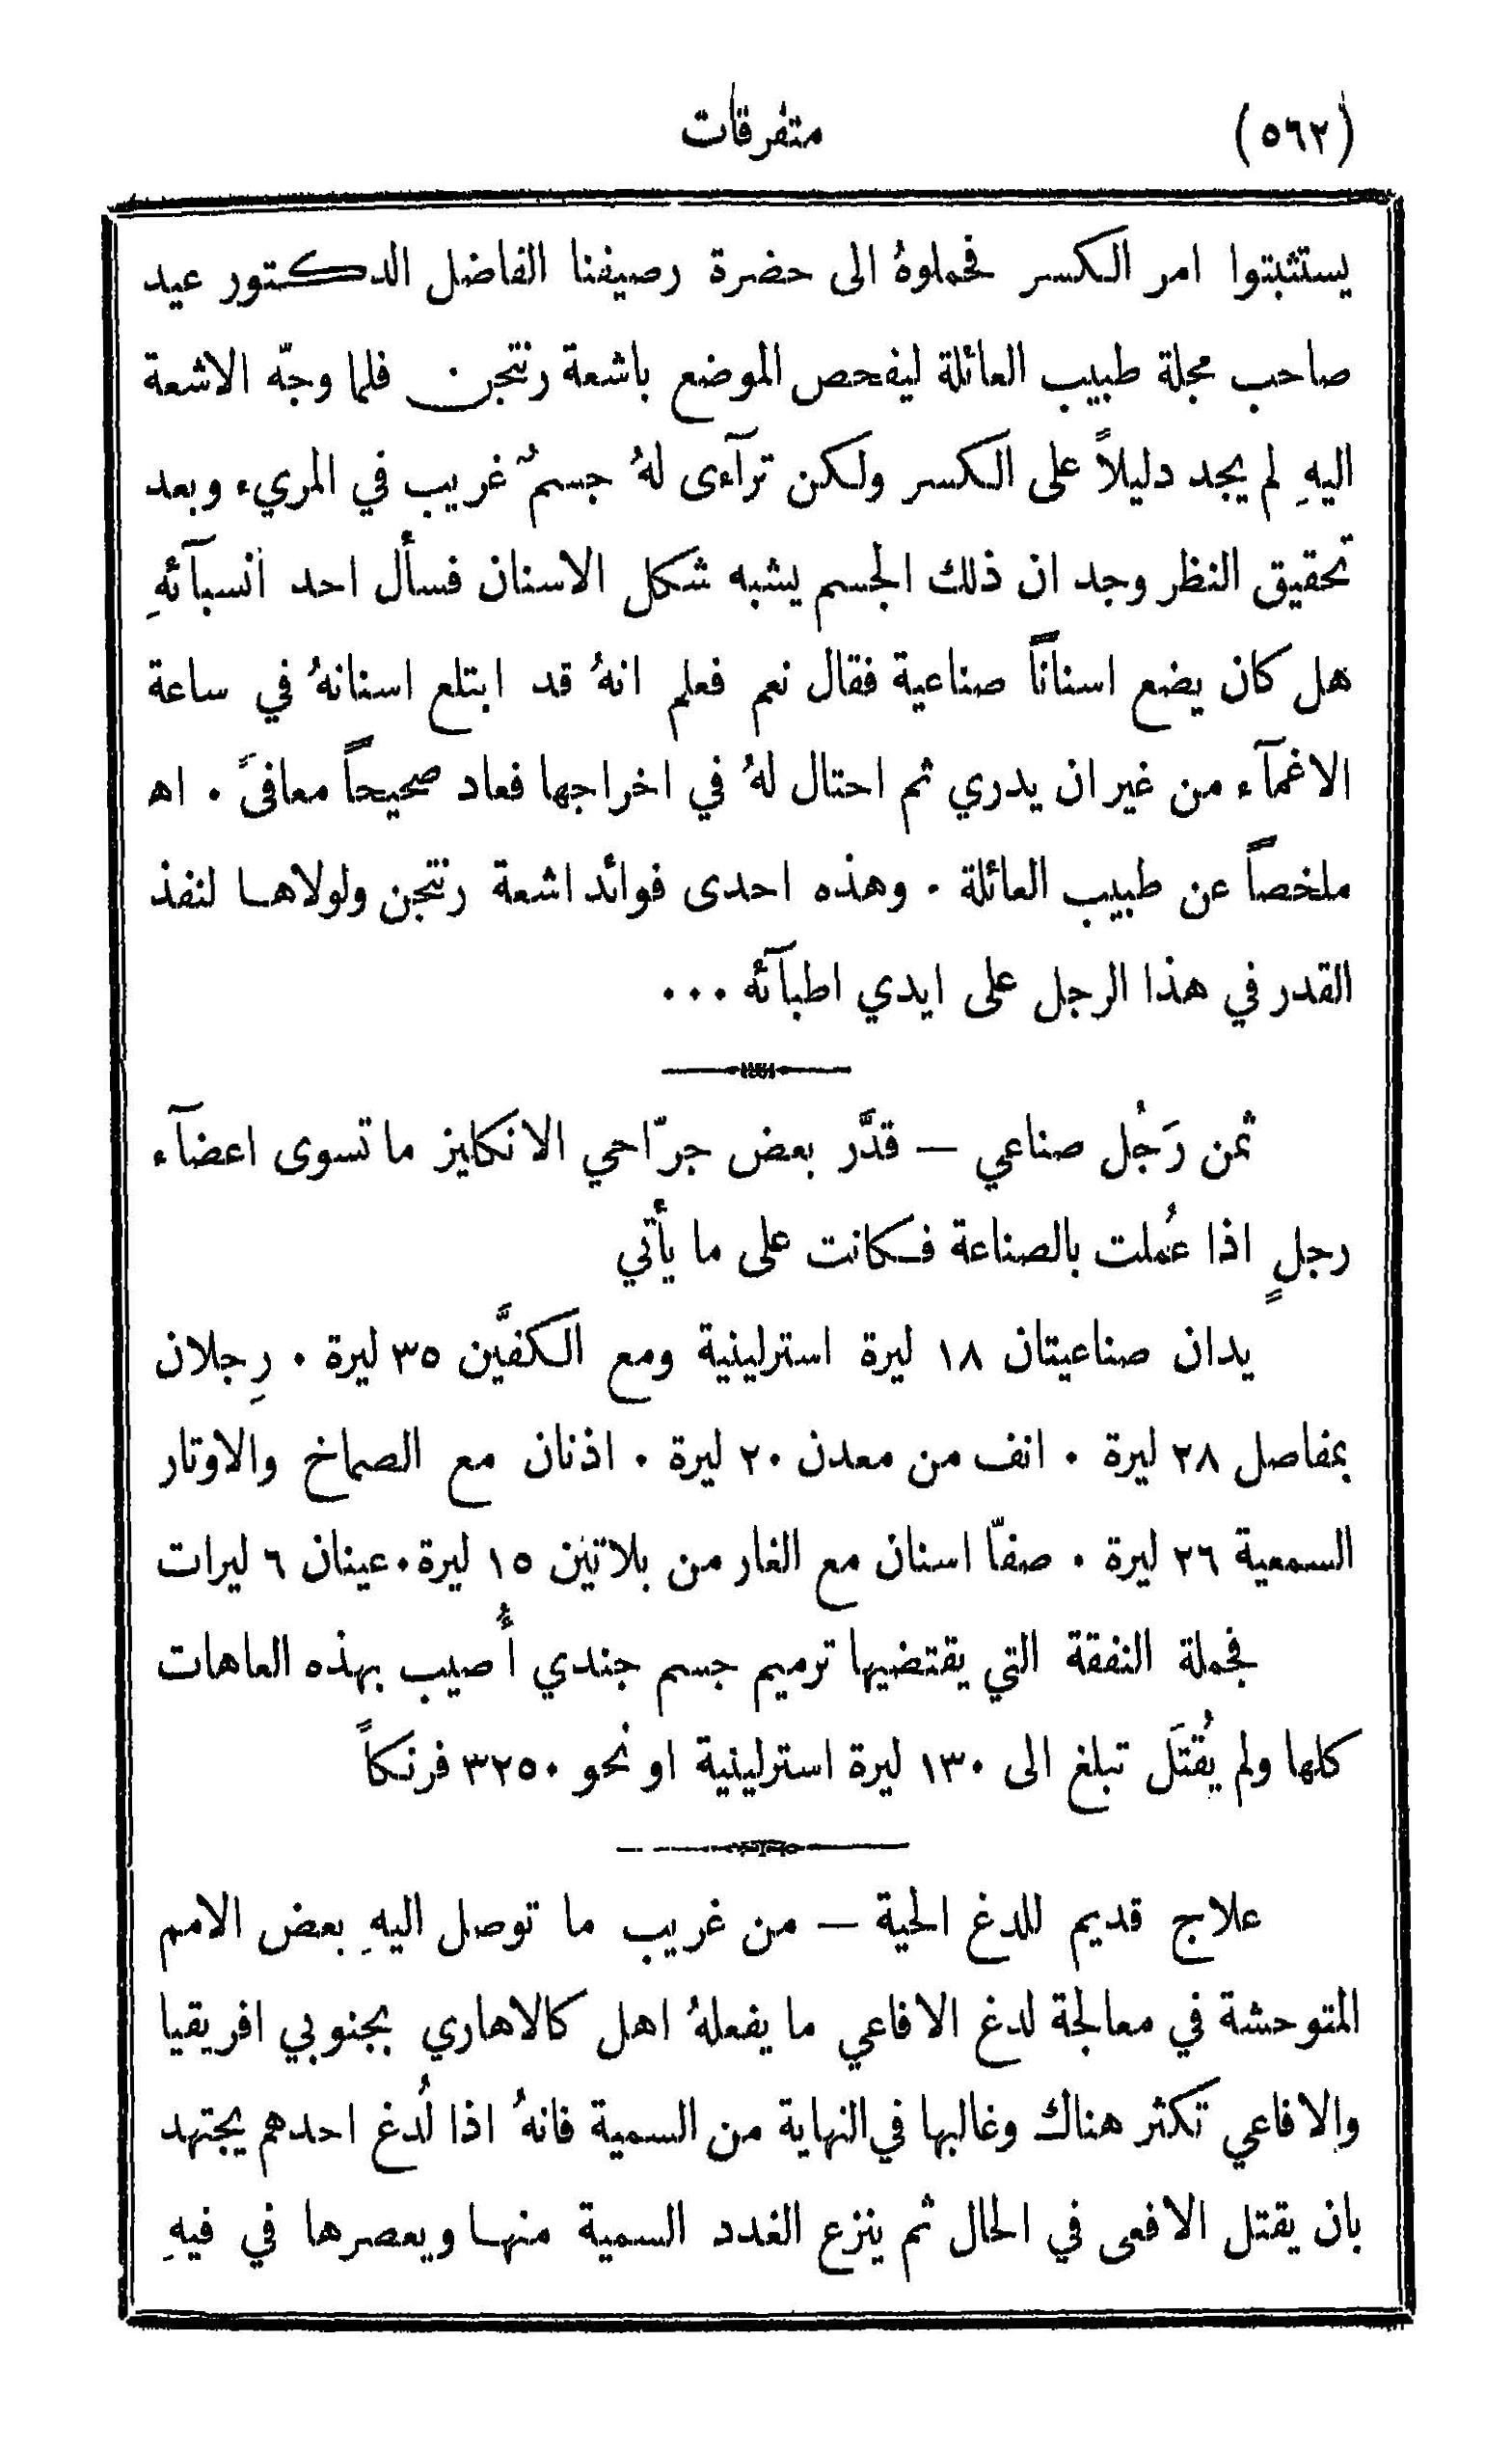 (٥٦٢) متفرقات
يستثبتوا امر الكسر فحملوهُ الى حضرة رصيفنا الفاضل الدكتور عيد
صاحب مجلة طبيب العائلة ليفحص الموضع باشعة رنتجن ٠ فلما وجّه الاشعة
اليهِ لم يجد دليلاً على الكسر ولكن ترآءى لهُ جسمٌ غريب في المريء وبعد
تحقيق النظر وجد ان ذلك الجسم يشبه شكل الاسنان فسأل احد انسبآئهِ
هل كان يضع اسناناً صناعية فقال نعم فعلم انهُ قد ابتلع اسنانهُ في ساعة
الاغمآء من غير ان يدري ثم احتال لهُ في اخراجها فعاد صحيحاً معافىً ٠ اه
ملخصاً عن طبيب العائلة ٠ وهذه احدى فوائد اشعة رنتجن ولولاها لنفذ
القدر في هذا الرجل على ايدي اطبآئه ٠٠٠
ثمن رَجُل صناعي — قدَّر بعض جرّاحي الانكليز ما تسوى اعضآء
رجلٍ اذا عُملت بالصناعة فكانت على ما يأتي
يدان صناعيتان ١٨ ليرة استرلينية ومع الكفَّين ٣٥ ليرة ٠ رِجلان
بمفاصل ٢٨ ليرة ٠ انف من معدن ٢٠ ليرة ٠ اذنان مع الصماخ والاوتار
السمعية ٢٦ ليرة ٠ صفّا اسنان مع الغار من بلاتين ١٥ ليرة ٠ عينان ٦ ليرات
فجملة النفقة التي يقتضيها ترميم جسم جندي أُصيب بهذه العاهات
كلها ولم يُقتَل تبلغ الى ١٣٠ ليرة استرلينية او نحو ٣٢٥٠ فرنكاً
علاج قديم للدغ الحية — من غريب ما توصل اليهِ بعض الامم
المتوحشة في معالجة لدغ الافاعي ما يفعلهُ اهل كالاهاري بجنوبي افريقيا
والافاعي تكثر هناك وغالبها في النهاية من السمية فانهُ اذا لُدغ احدهم يجتهد
بان يقتل الافعى في الحال ثم ينزع الغدد السمية منها ويعصرها في فيهِ